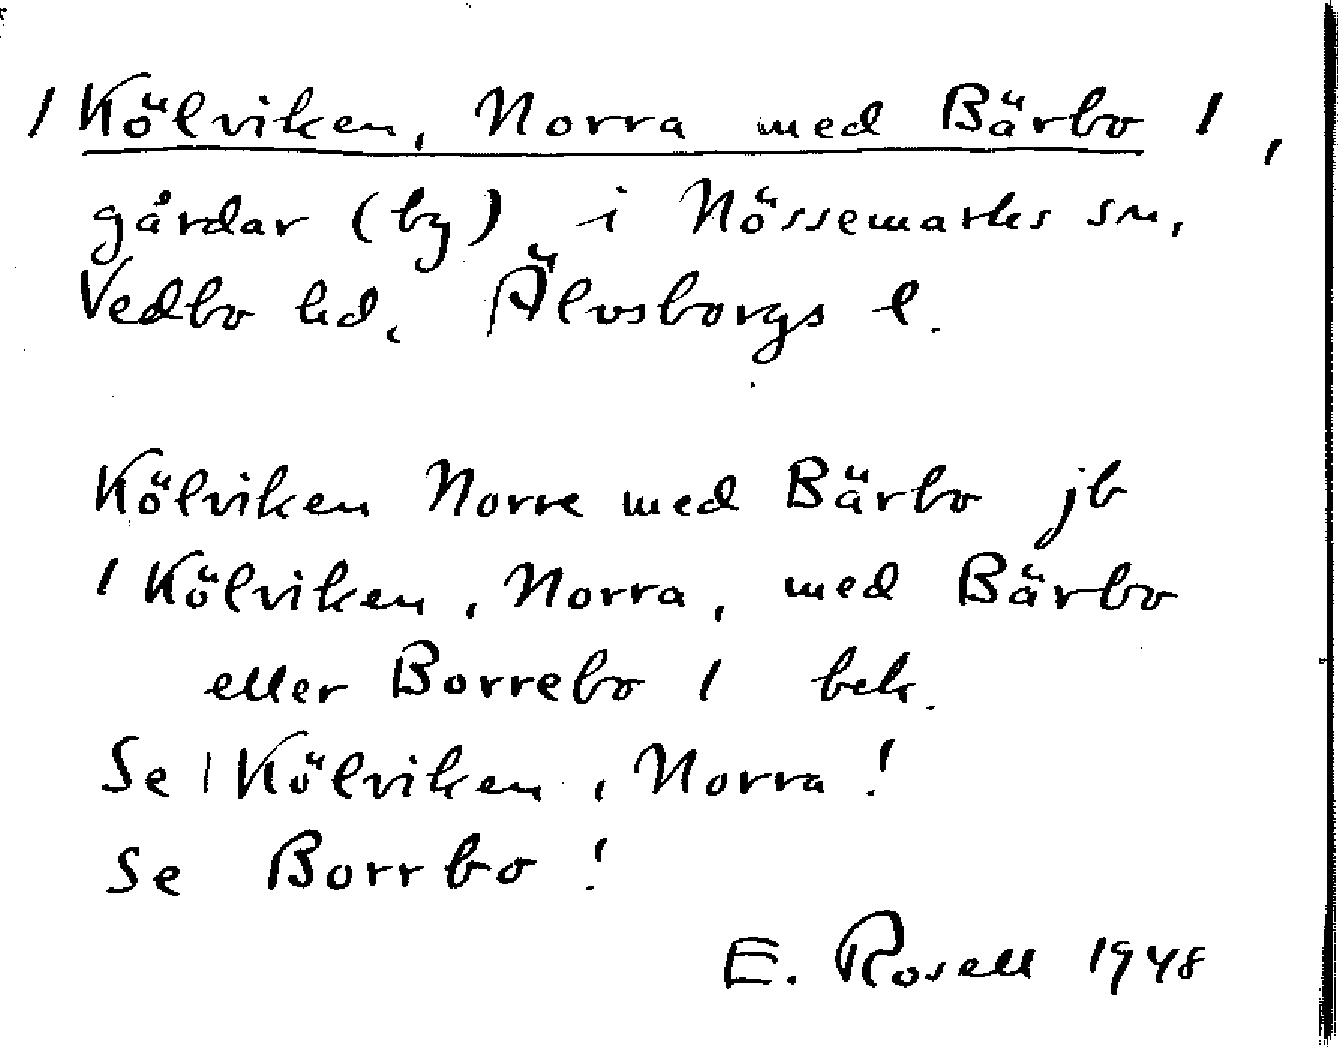 / Kölviken, Norra med Bärbo /,
gårdar (by) i Nössemarks sn,
Vedbo hd, Älvsborgs l.
Kölviken Norre med Bärbo jb
/ Kölviken, Norra, med Bärbo
eller Borrebo / bek.
Se / Kölviken, Norra!
Se Borrbo!
E. Rosell 1948